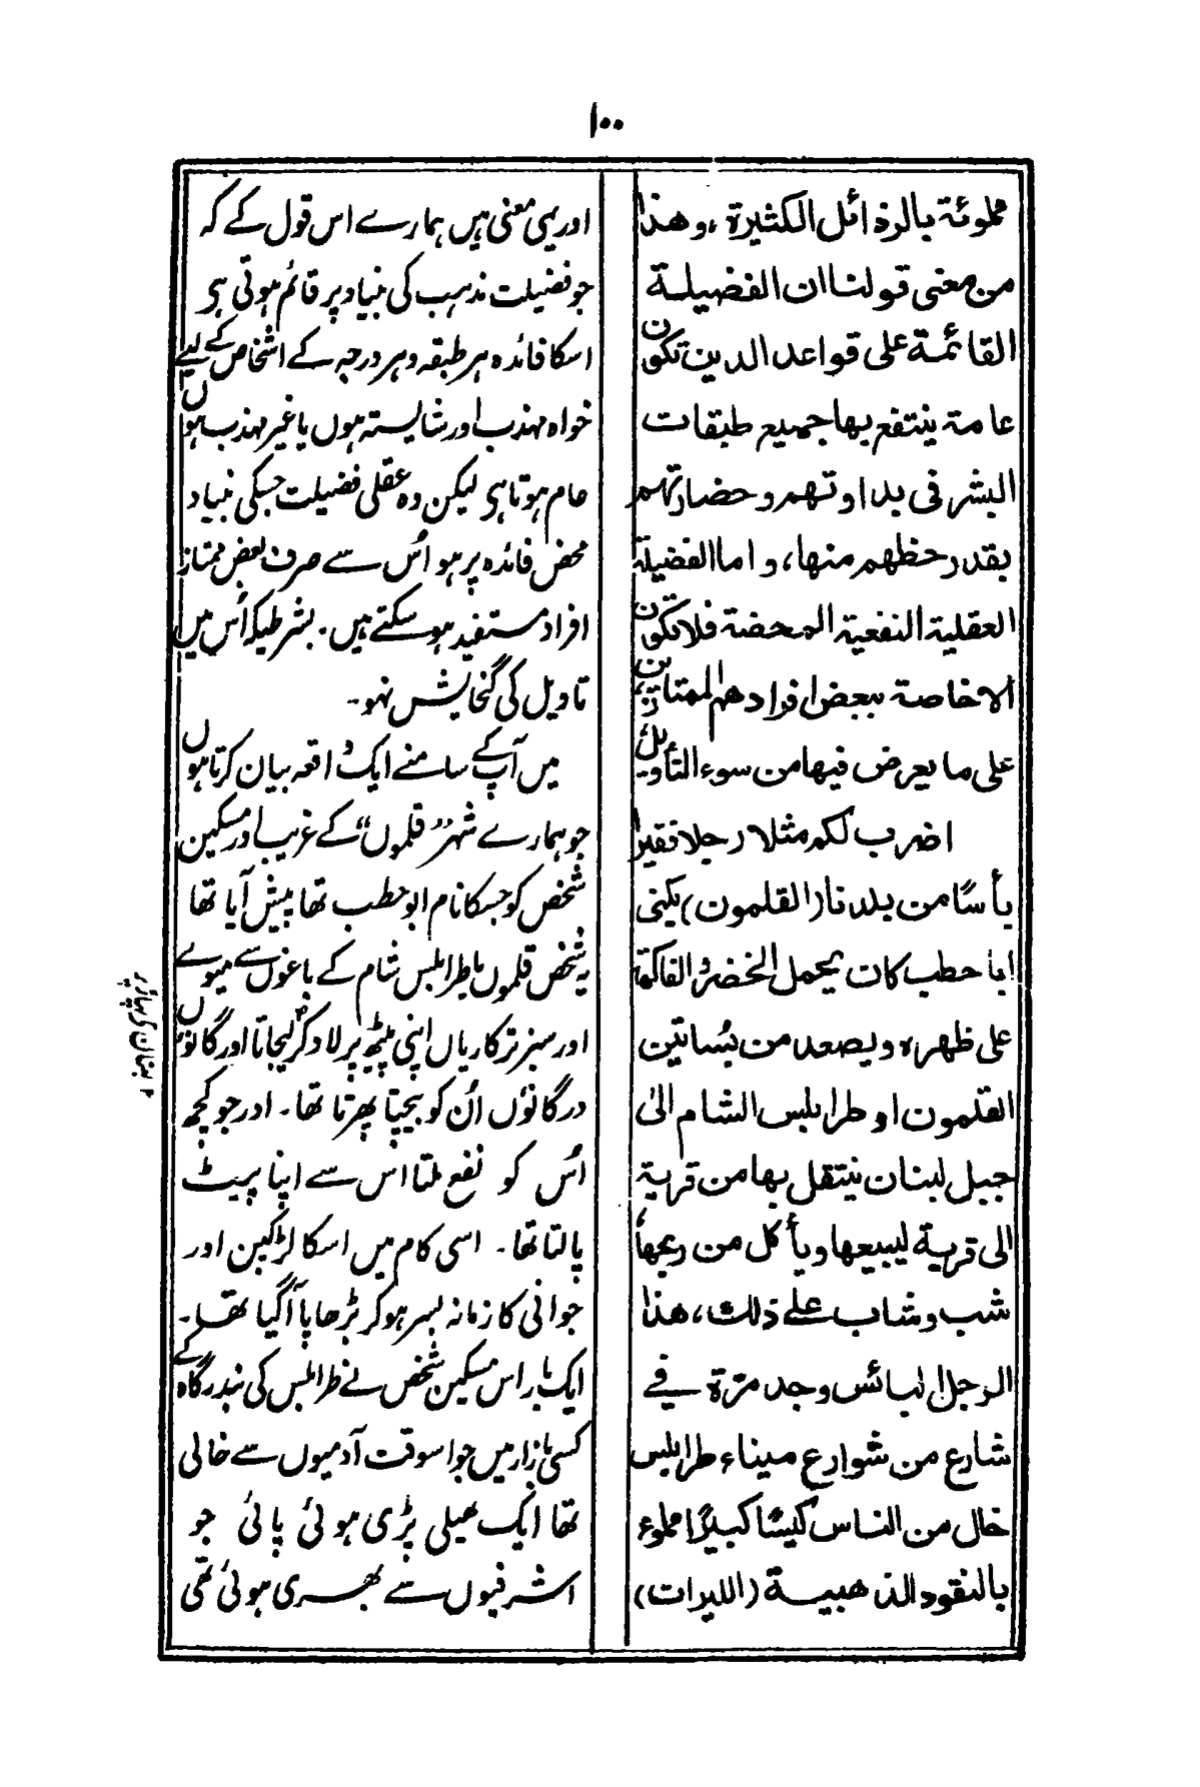 ۱۰۰
مملوئة بالرذائل الكثيرة ،وهذا
من معنى قولنا ان الفضيلة
القائمة على قواعد الدين تكون
عامة ينتفع بها جميع طبقات
البشر فى بداوتهم وحضارتهم
بقدر حظهم منها، واما الفضيلة
العقلية النفعية المحضة فلا تكون
الاخاصة ببعض افرادهم الممتازين
على ما يعرض فيها من سوء التأويل
اضرب لكم مثلا رجلا فقيرا
يأسًا من بلدنا (القلمون) يكنى
ابا حطب كان يحمل الخضر والفاكهة
على ظهره ويصعد من بساتين
القلمون او طرابلس الشام الىٰ
جبل لبنان ينتقل بها من قرية
الى قرية ليبيعها ويأكل من ربحها،
شب وشاب علے ذلك، هذا
الرجل البائس وجد مرّة فے
شارع من شوارع ميناء طرابلس
خال من الناس كيسًا كبيرًا مملوء
بالنقود الذهبية (الليرات)
اور یہی معنی ہیں ہمارے اس قول کے کہ
جو فضیلت مذہب کی بنیاد پر قائم ہوتی ہی
اسکا فائدہ ہر طبقہ و ہر درجہ کے اشخاص کے لیے
خواہ مہذب اور شایستہ ہوں یا غیر مہذب ہوں
عام ہوتا ہی لیکن وہ عقلی فضیلت جسکی بنیاد
محض فائدہ پر ہو اُس سے صرف بعض ممتاز
افراد مستفید ہو سکتے ہیں۔ بشرطیکہ اُس میں
تاویل کی گنجایش نہو۔
میں آپ کے سامنے ایک واقعہ بیان کرتا ہوں
جو ہمارے شہر "قلموں" کے غریب اور مسکین
شخص کو جسکا نام ابو حطب تھا پیش آیا تھا
یہ شخص قلموں یا طرابلس شام کے باغوں سے میوے
اور سبز ترکاریاں اپنی پیٹھ پر لاد کر لیجاتا اور گانوں
در گانوں اُن کو بیچتا پھرتا تھا۔ اور جو کچھ
اُس کو نفع ملتا اس سے اپنا پیٹ
پالتا تھا۔ اسی کام میں اسکا لڑکپن اور
جوانی کا زمانہ بسر ہوکر بڑھاپا آگیا تھا۔
ایک بار اس مسکین شخص نے طرابلس کی بندرگاہ کے
کسی بازار میں جو اسوقت آدمیوں سے خالی
تھا ایک تھیلی پڑی ہوئی پائی جو
اشرفیوں سے بھری ہوئی تھی
لبنان کی پہاڑ پر